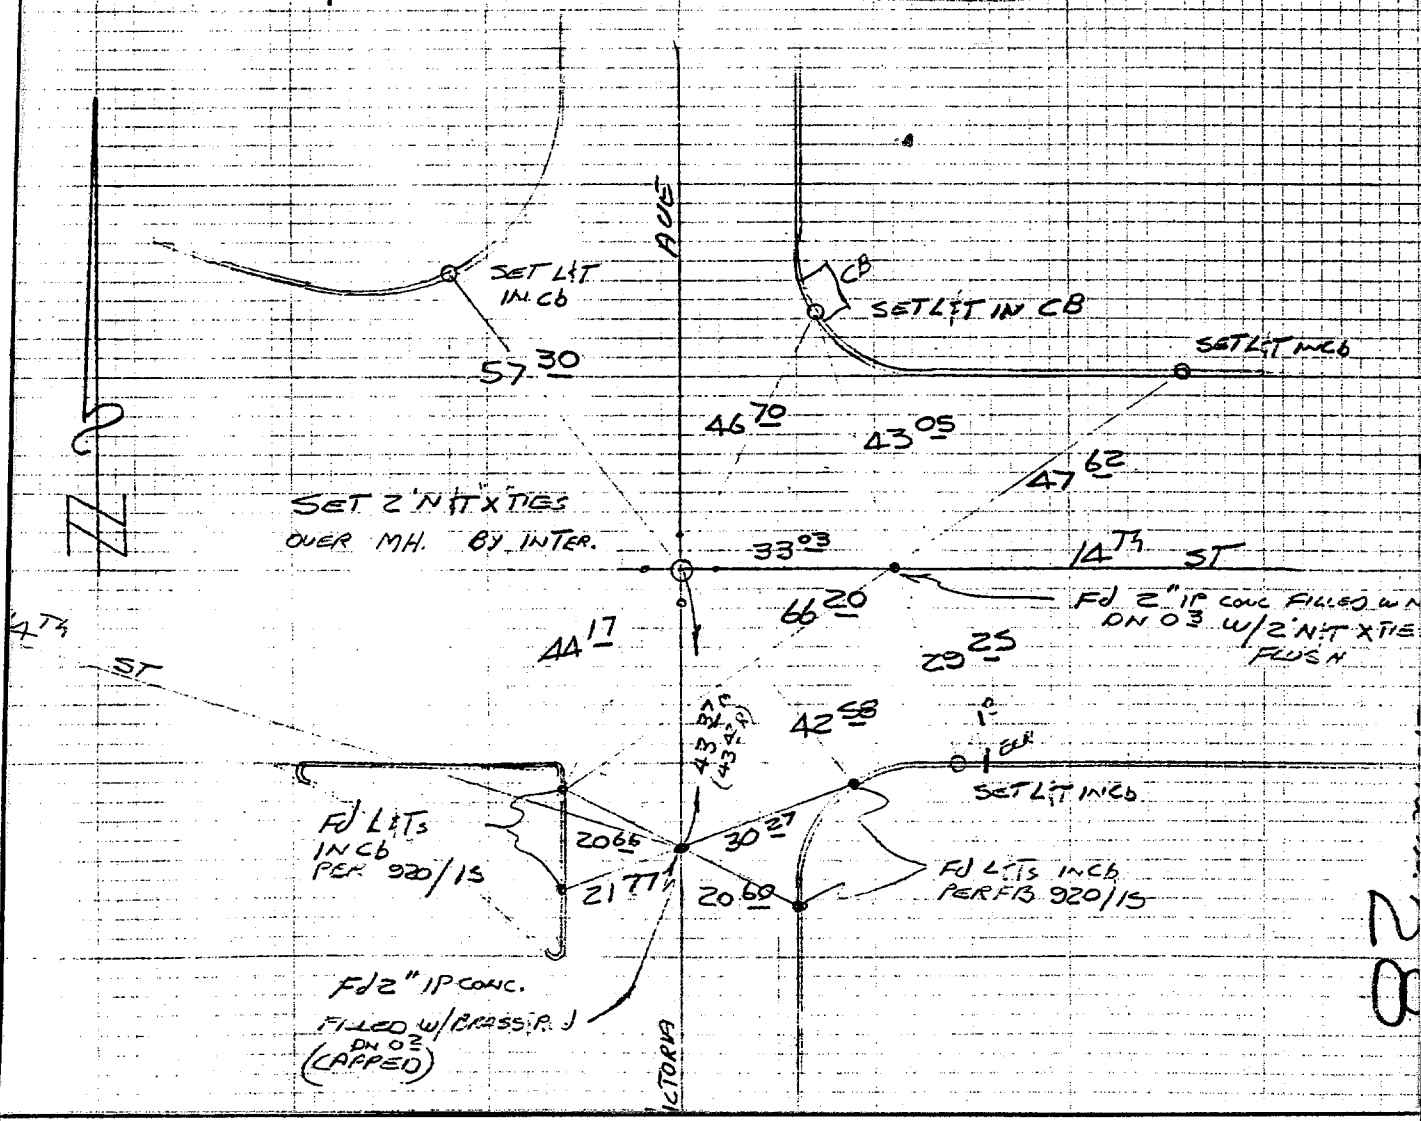 AVE
SET L&T
IN Cb
CB
SET L&T IN CB
SET L&T IN Cb
57 30
46 70
43 05
47 62
N
SET 2' N&T X TIES
OVER MH. BY INTER.
33 03
14 Th ST
Fd 2" IP CONC FILLED W
DN 03 W/2' N&T X TIE
FLUSH
66 20
44 17
29 25
4 Th
ST
42 58
43 37
1 0
ECR
SET L&T IN Cb
Fd L&Ts
IN Cb
PER 920/15
20 65
30 27
21 77
20 60
Fd L&Ts IN Cb
PER FB 920/15
28
Fd 2" IP CONC.
FILLED W/BRASS
DN 02
(CAPPED)
ICTORIA